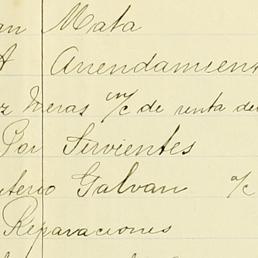 an Mata
A Arrendamient
z Neras m/c de renta de
Por Sirvientes
uterio Galvan o/c
Reparaciones